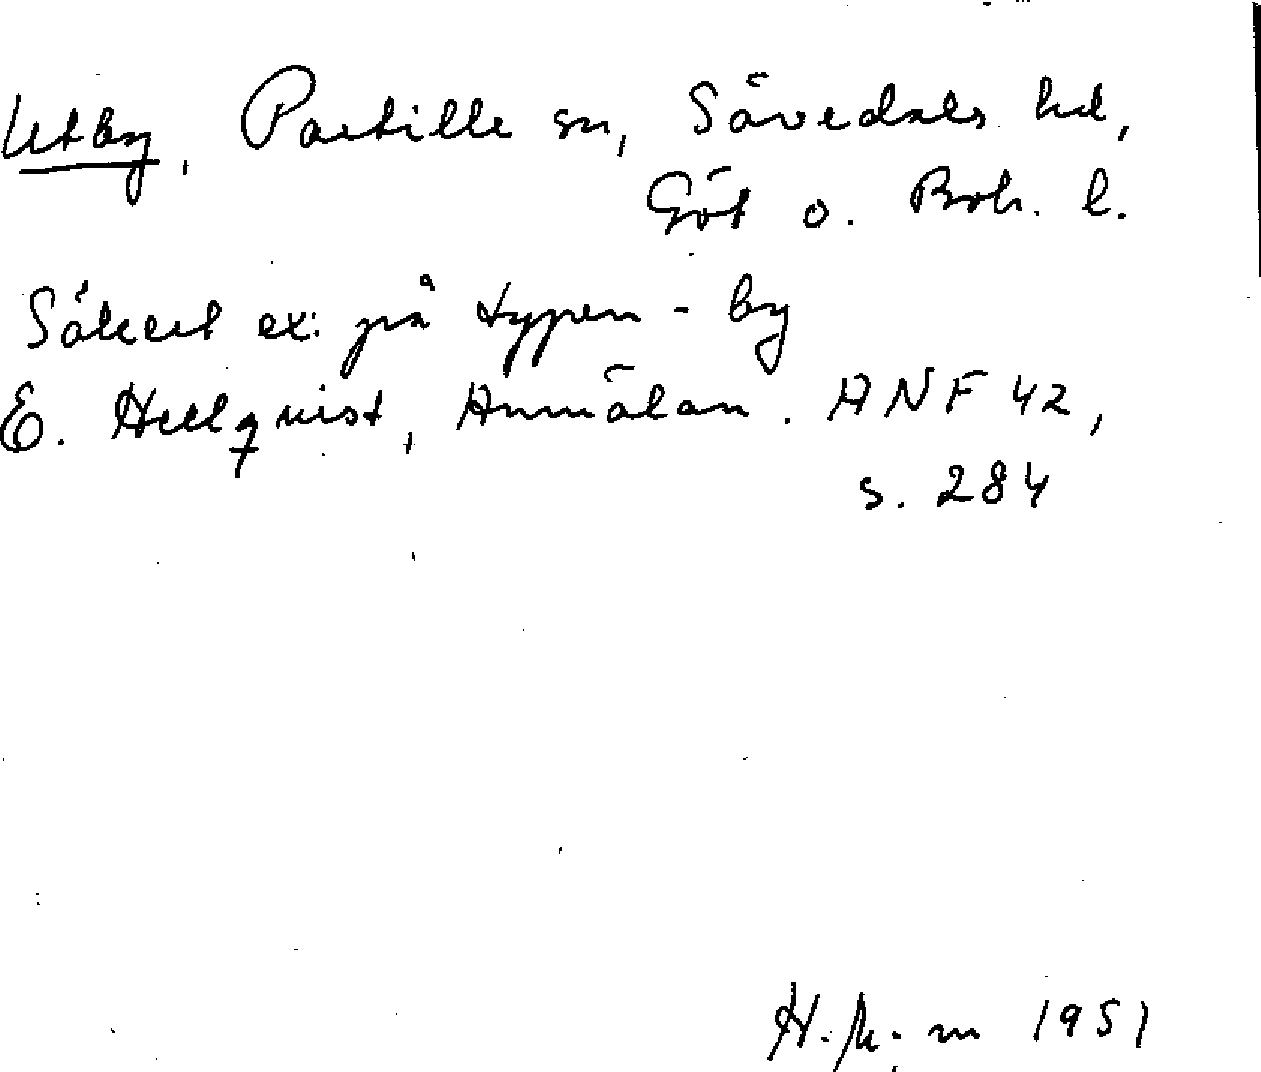 Utby, Partille sn, Sävedals hd,
Göt o. Boh. l.
Säkert ex: på typen -by
E. Hellquist, Anmälan. ANF 42,
s. 284
1951